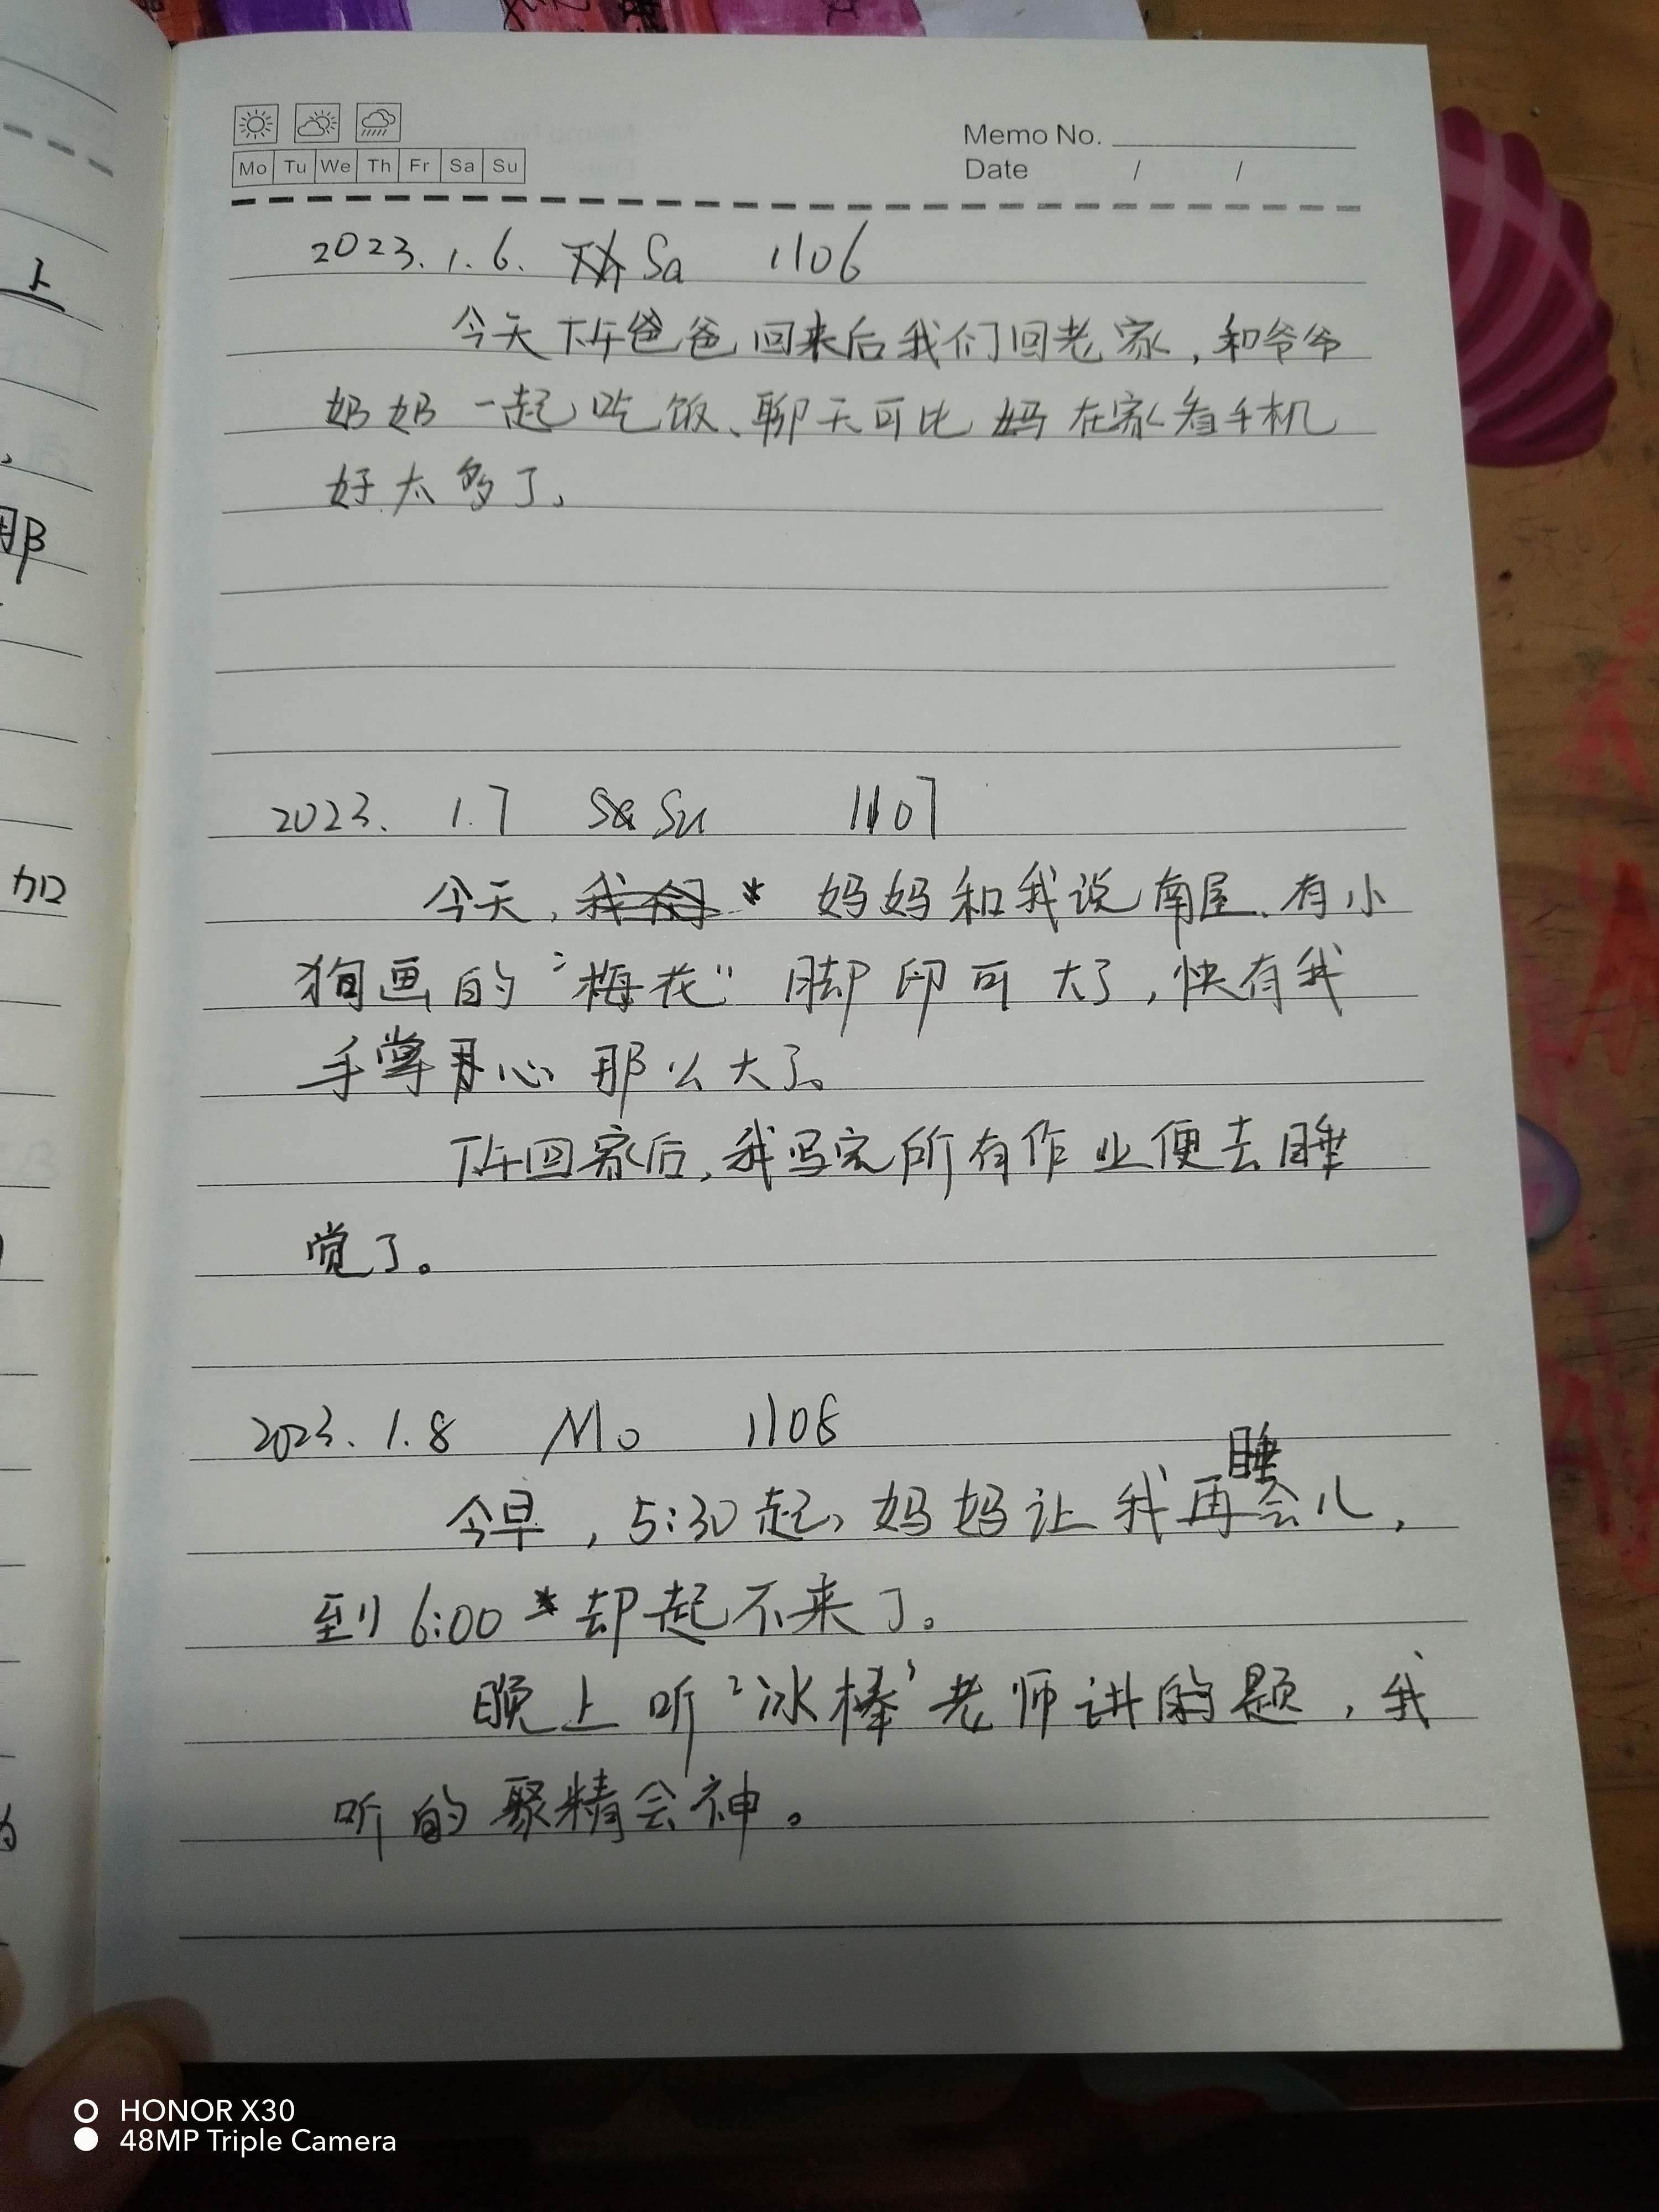 Mo Tu We Th Fr Sa Su
Memo No.
Date / /
2023.1.6. Sa 1106
今天下午爸爸回来后我们回老家，和爷爷
奶奶一起吃饭、聊天可比妈在家看手机
好太多了。
2023. 1.7 Su 1107
今天，妈妈和我说南屋、有小
狗画的“梅花”脚印可大了，快有我
手掌心那么大了。
下午回家后，我写完所有作业便去睡
觉了。
2023.1.8 Mo 1108
今早，5:30起，妈妈让我再睡会儿，
到6:00却起不来了。
晚上听‘冰棒’老师讲的题，我
听的聚精会神。
上
那
加
HONOR X30
48MP Triple Camera